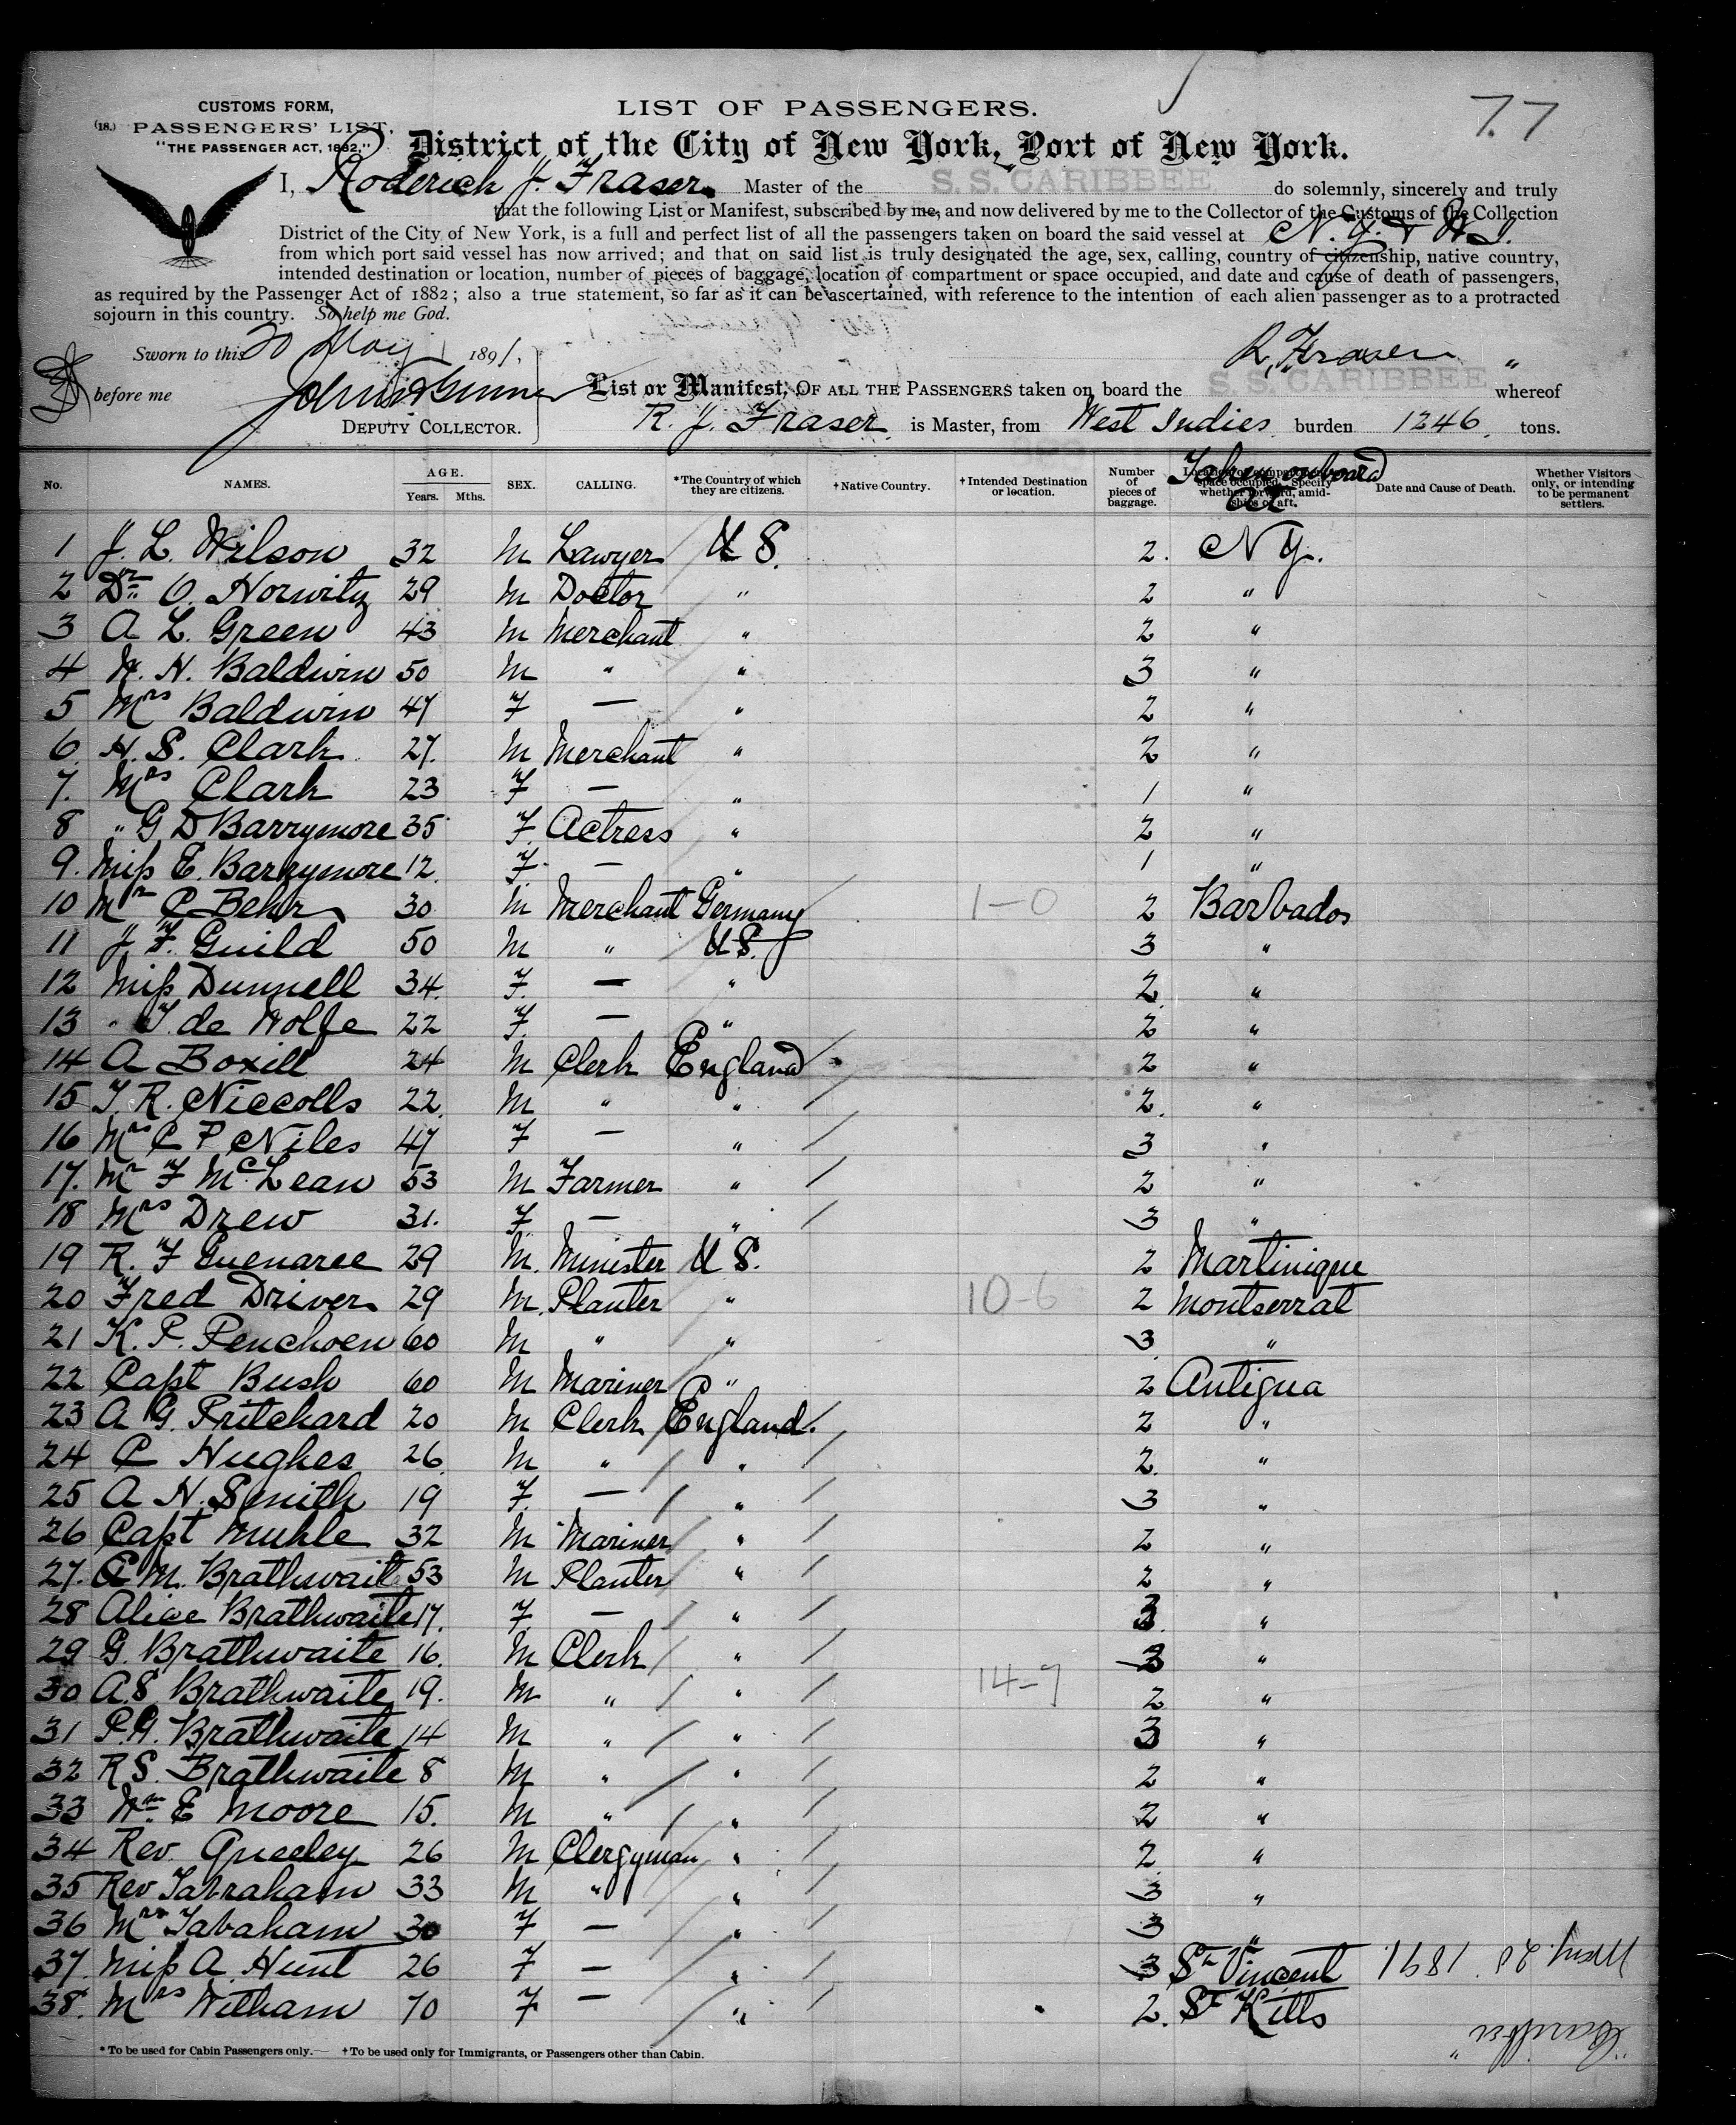 77
CUSTOMS FORM,
(18.) PASSENGERS' LIST.
"THE PASSENGER ACT, 1882,"
LIST OF PASSENGERS.
District of the City of New York, Port of New York.
I, Roderick J. Fraser Master of the S. S. CARIBBEE do solemnly, sincerely and truly
that the following List or Manifest, subscribed by me, and now delivered by me to the Collector of the Customs of the Collection
District of the City of New York, is a full and perfect list of all the passengers taken on board the said vessel at N. Y. & W I.
from which port said vessel has now arrived; and that on said list is truly designated the age, sex, calling, country of citizenship, native country,
intended destination or location, number of pieces of baggage, location of compartment or space occupied, and date and cause of death of passengers,
as required by the Passenger Act of 1882; also a true statement, so far as it can be ascertained, with reference to the intention of each alien passenger as to a protracted
sojourn in this country. So help me God.
Sworn to this 20 May 1891,
R. Fraser
before me
DEPUTY COLLECTOR.
List or Manifest, OF ALL THE PASSENGERS taken on board the S. S. CARIBBEE whereof
R. J. Fraser is Master, from West Indies burden 1246 tons.
No. NAMES. AGE. Years. Mths. SEX. CALLING. *The Country of which they are citizens. †Native Country. †Intended Destination or location. Number of pieces of baggage. Location of compartment or space occupied. Specify whether forward, amidships or aft. Taken onboard at Date and Cause of Death. Whether Visitors only, or intending to be permanent settlers.
1 J. L. Wilson 32 M Lawyer U S. 2. N Y.
2 Dr. O. Horwitz 29 M Doctor " 2 "
3 A L. Green 43 M Merchant " 2 "
4 W. H. Baldwin 50 M " " 3 "
5 Mrs Baldwin 47 F — " 2 "
6 H. S. Clark 27. M Merchant " 2 "
7. Mrs Clark 23 F — " 1 "
8 " G D Barrymore 35 F. Actress " 2 "
9. Miss E. Barrymore 12 F. — " 1 "
10 Mr C Behr 30 M Merchant Germany 1-0 2 Barbados
11 J. F. Guild 50 M " U S. 3 "
12 Miss Dunnell 34. F. — " 2 "
13 " T. de Wolfe 22 F. — " 2 "
14 A Boxill 24 M Clerk England 2 "
15 T. R. Niccolls 22. M " " 2. "
16 Mrs C P Niles 47 F — " 3 "
17. Mr F McLean 53 M Farmer " 2 "
18 Mrs Drew 31. F — " 3 "
19 R. F Guenaree 29 M. Minister U S. 2 Martinique
20 Fred Driver 29 M. Planter " 10-6 2 Montserrat
21 K. P. Penchoen 60 M " " 3 "
22 Capt Bush 60 M Mariner " 2 Antigua
23 A G. Pritchard 20 M Clerk England. 2 "
24 C Hughes 26 M " " 2. "
25 A N. Smith 19 F. — " 3 "
26 Capt Muhle 32 M Mariner " 2 "
27. C M. Brathwait 53 M Planter " 2 "
28 Alice Brathwaite 17. F — " 3 "
29 G. Brathwaite 16. M Clerk " 3 "
30 A.S Brathwaite 19. M " " 14-7 2 "
31 P.A. Brathwaite 14 M " " 3 "
32 R S. Brathwaite 8 M " " 2 "
33 Wm E Moore 15. M " " 2 "
34 Rev. Queeley 26 M Clergyman " 2 "
35 Rev Tabraham 33 M " " 3 "
36 Mrs Tabaham 30 F — " 3 "
37. Miss A. Hunt 26 F — " 3 St Vincent
38. Mrs Witham 70 F — " 2. St Kitts
May 20 1891
"Caribbee"
*To be used for Cabin Passengers only.— †To be used only for Immigrants, or Passengers other than Cabin.